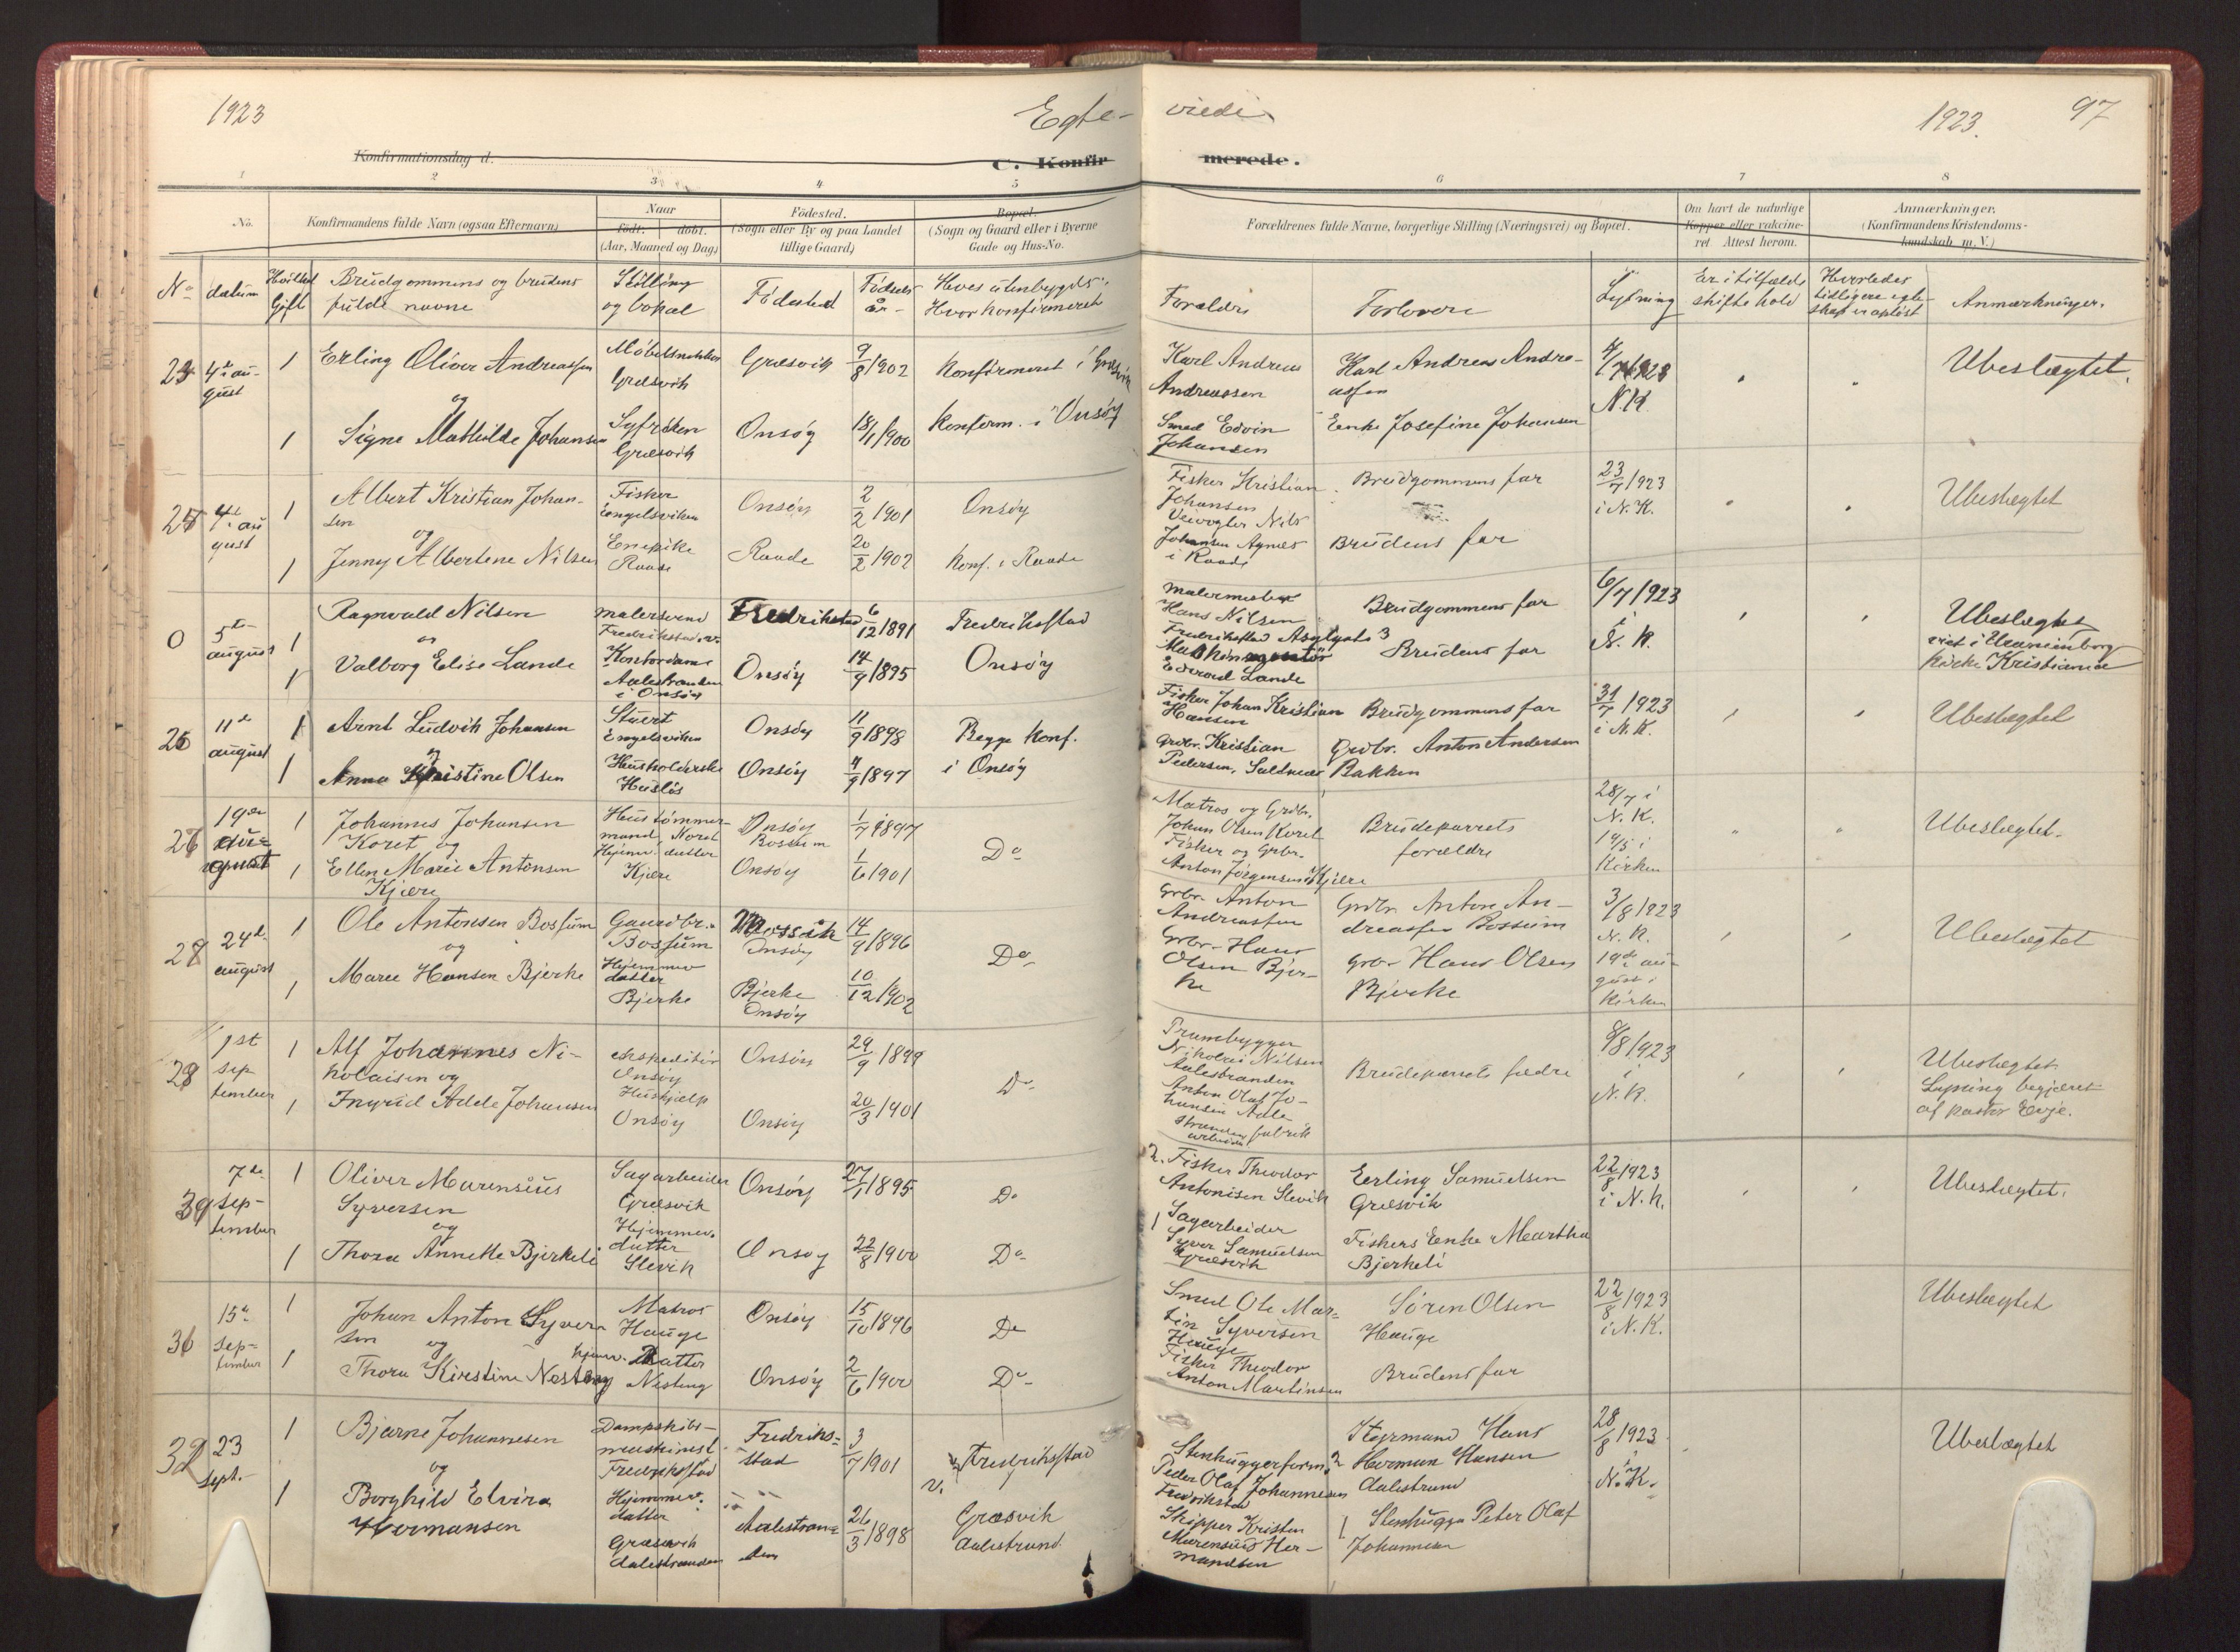 1923
Egte-
viedi
1923.
97
Konfirmationsdag d.
C. Konfir
merede.
1 2 3 4 5 6 7 8
No.
Konfirmandens fulde Navn (ogsaa Efternavn)
Naar
født.
døbt.
(Aar, Maaned og Dag)
Fødested.
(Sogn eller By og paa Landet
tillige Gaard)
Bopæl.
(Sogn og Gaard eller i Byerne
Gade og Hus-No.
Forældrenes fulde Navne, borgerlige Stilling (Næringsvei) og Bopæl.
Om havt de naturlige
Kopper eller vakcine-
ret Attest herom.
Anmærkninger.
(Konfirmandens Kristendoms-
kundskab m. V.)
No
datum
Gift
Brudgommens og brudens
fulde navne
Stilling
og bopæl
Fødested
Fødsels
år
Hves utenbygds.
Hvor konfirmeret
Forældre
Forlovere
Lysning
Er i tilfælde
skifte hold
Hvorledes
tidligere egte-
skap er opløst
Anmærkninger.
4de au-
gust
1
Erling Oliver Andreassen
og
Møbelsnekker
Græsvik
Græsvik
9/8 1902
Konfirmeret i Græsvik
Karl Andreas
Andreassen
Karl Andreas Andre-
assen
N.K.
Ubeslægtet.
1
Signe Mathilde Johansen
Syfrøken
Græsvik
Onsøy
18/1 1900
Konfirm. i Onsøy
Smed Edvin
Johansen
Enke Josefine Johansen
4de au
gust
1
Albert Kristian Johan-
sen
og
Fisker
Engelsviken
Onsøy
2/2 1901
Onsøy
Fisker Kristian
Johansen
Brudgommens far
23/7 1923
i N.K.
Ubeslægtet
1
Jenny Albertene Nilsen
Raade
Raade
20/2 1902
Konf. i Raade
Johansen Agnes
i Raade
Brudens far
0
5te
august
1
Ragnvald Nilsen
og
Malersvend
Fredrikstad
6/12 1891
Fredrikstad
Malermester
Hans Nilsen
Brudgommens far
6/7 1923
i
N.K.
Ubeslegtet
viet i Uranienborg
kirke Kristiania
1
Valborg Elise Lande
Kontordame
Aalestranden
i Onsøy
Onsøy
14/9 1895
Onsøy
Edvard Lande
Brudens far
26
11te
august
1
Arnt Ludvik Johansen
og
Stuert
Engelsviken
Onsøy
11/9 1898
Begge konf.
i Onsøy
Fisker Johan Kristian
Hansen
Brudgommens far
31/7 1923
i N.K.
Ubeslegtet
1
Anna Kristine Olsen
Husholderske
Onsøy
4/9 1897
Grdbr. Kristian
Pedersen,
Grdbr. Anton Andersen
Bakken
19de
august
1
Johannes Johansen
Koret og
Hustømmer-
mand
Onsøy
1/7 1897
Do
Matros og Grdbr.
Johan Olsen Koret
Brudeparrets
forældre
28/7 i
N.K.
Ubeslegtet.
1
Ellen Marie Antonsen
Kjære
Hjemmev. datter
Kjære
Onsøy
1/6 1901
Fisker og Grbr.
Anton Jørgensen Kjære
Kirken
28
24de
august
1
Ole Antonsen Bossum
og
Gaardbr.
Bossum
Onsøy
14/9 1896
Do
Grbr. Anton
Andreassen
Grdbr. Anton An-
dreassen Bossum
3/8 1923
N.K.
Ubeslegtet
1
Marie Hansen Bjerke
Hjemmev
datter
Bjerke
Bjerke
Onsøy
10/12 1902
Grbr. Hans
Olsen Bjer-
ke
Grbr. Hans Olsen
Bjerke
19de au-
gust i
Kirken
1st
sep
tember
1
Alf Johannes Ni-
kolaisen og
ekspeditør
Onsøy
Onsøy
29/9 1899
Do
Prambygger
Nikolai Nilsen
Aalestranden
Brudeparrets fædre
8/8 1923
i
N.K.
Ubeslegtet
Lysning begjæret
af pastor Evje.
1
Ingrid Adele Johansen
Hushjælp
Onsøy
Onsøy
20/3 1901
Anton Olaf Jo-
hansen Aale
stranden fabrik
arbeider
7de
sep-
tember
1
Oliver Marensius
Syversen
og
Sagarbeider
Græsvik
Onsøy
27/1 1895
Do
2. Fisker Theodor
Antonisen Slevik
Erling Samuelsen
Græsvik
22/8 1923
i N.K.
Ubeslegtet.
1
Thora Annette Bjerkeli
Hjemmev.
datter
Slevik
Onsøy
22/8 1900
Do
1 Sagarbeider
Syver Samuelsen
Græsvik
Fiskers Enke Martha
Bjerkeli
15de
sep-
tember
1
Johan Anton Syver
sen
og
Matros
Hauge
Onsøy
15/10 1896
Do
Smed Ole Mar-
tin Syversen
Hauge
Søren Olsen
Hauge
22/8 1923
i N.K.
Ubeslegtet
1
Thora Kirstine Nesteng
hjemv. Datter
Nesteng
Onsøy
2/6 1900
Do
Fisker Theodor
Anton Martinsen
Brudens far
23
sept.
1
Bjarne Johannesen
og
Dampskibs-
maskinist
Fredrikstad
Fredrik-
stad
3/7 1901
Fredriksstad
v.
Stenhuggerform. 2
Peder Olaf Johannesen
Fredrikstad
Styrmand Hans
Herman Hansen
Aalestrand
28/8 1923
i
N.K.
Ubeslegtet
1
Borghild Elvira
Hermansen
Hjemmev.
datter
Græsvik
Aalestranden
Aalestran-
den
26/3 1898
Græsvik
Aalestrand.
Skipper Kristen
Marensius Her-
mandsen
1 Stenhugger Peter Olaf
Johannesen